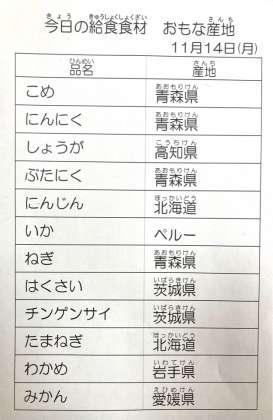 今日の給食食材 おもな産地
11月14日(月)
品名 産地
こめ 青森県
にんにく 青森県
しょうが 高知県
ぶたにく 青森県
にんじん 北海道
いか ペルー
ねぎ 青森県
はくさい 茨城県
チンゲンサイ 茨城県
たまねぎ 北海道
わかめ 岩手県
みかん 愛媛県